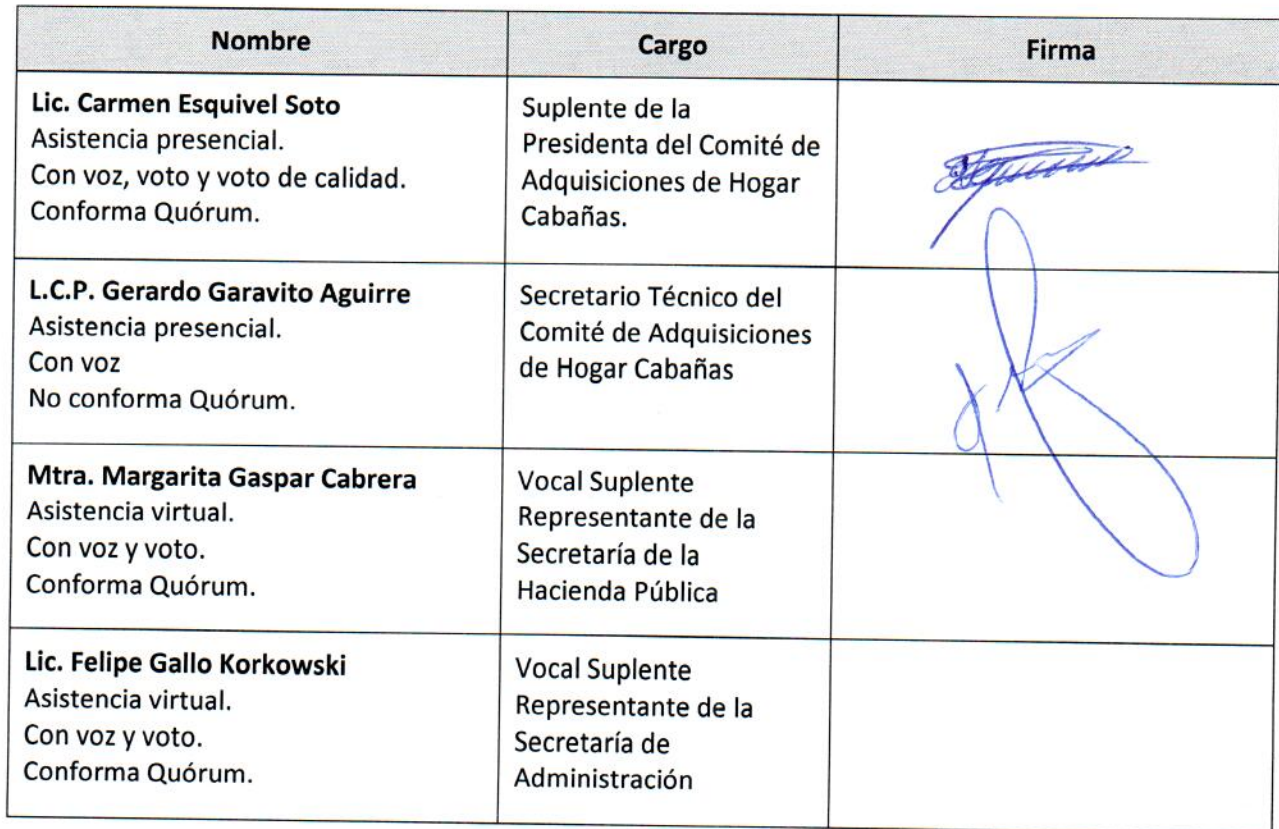 Nombre
Cargo
Firma
Lic. Carmen Esquivel Soto
Asistencia presencial.
Con voz, voto y voto de calidad.
Conforma Quórum.
Suplente de la
Presidenta del Comité de
Adquisiciones de Hogar
Cabañas.
L.C.P. Gerardo Garavito Aguirre
Asistencia presencial.
Con voz
No conforma Quórum.
Secretario Técnico del
Comité de Adquisiciones
de Hogar Cabañas
Mtra. Margarita Gaspar Cabrera
Asistencia virtual.
Con voz y voto.
Conforma Quórum.
Vocal Suplente
Representante de la
Secretaría de la
Hacienda Pública
Lic. Felipe Gallo Korkowski
Asistencia virtual.
Con voz y voto.
Conforma Quórum.
Vocal Suplente
Representante de la
Secretaría de
Administración